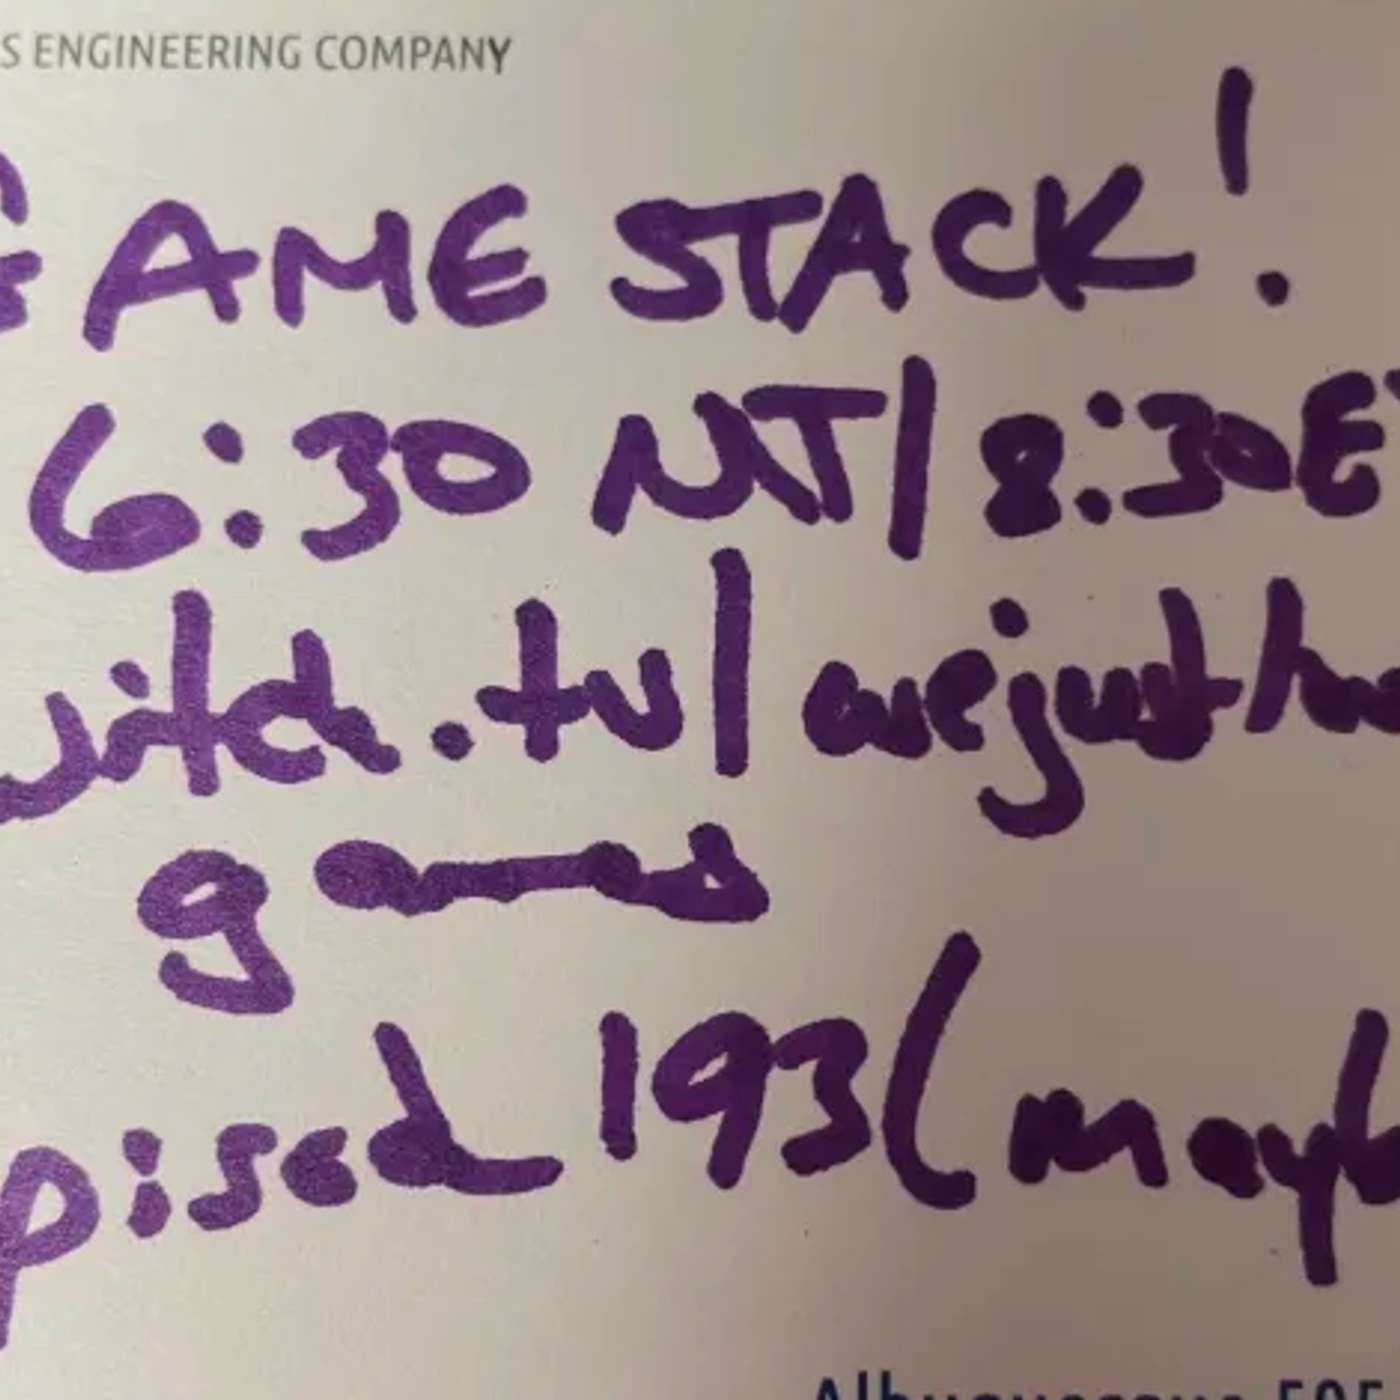 S ENGINEERING COMPANY
GAME STACK!
6:30 MT/8:30E
witch.tv/arejust
games
pisod 193(mayb
Albuquerque 505